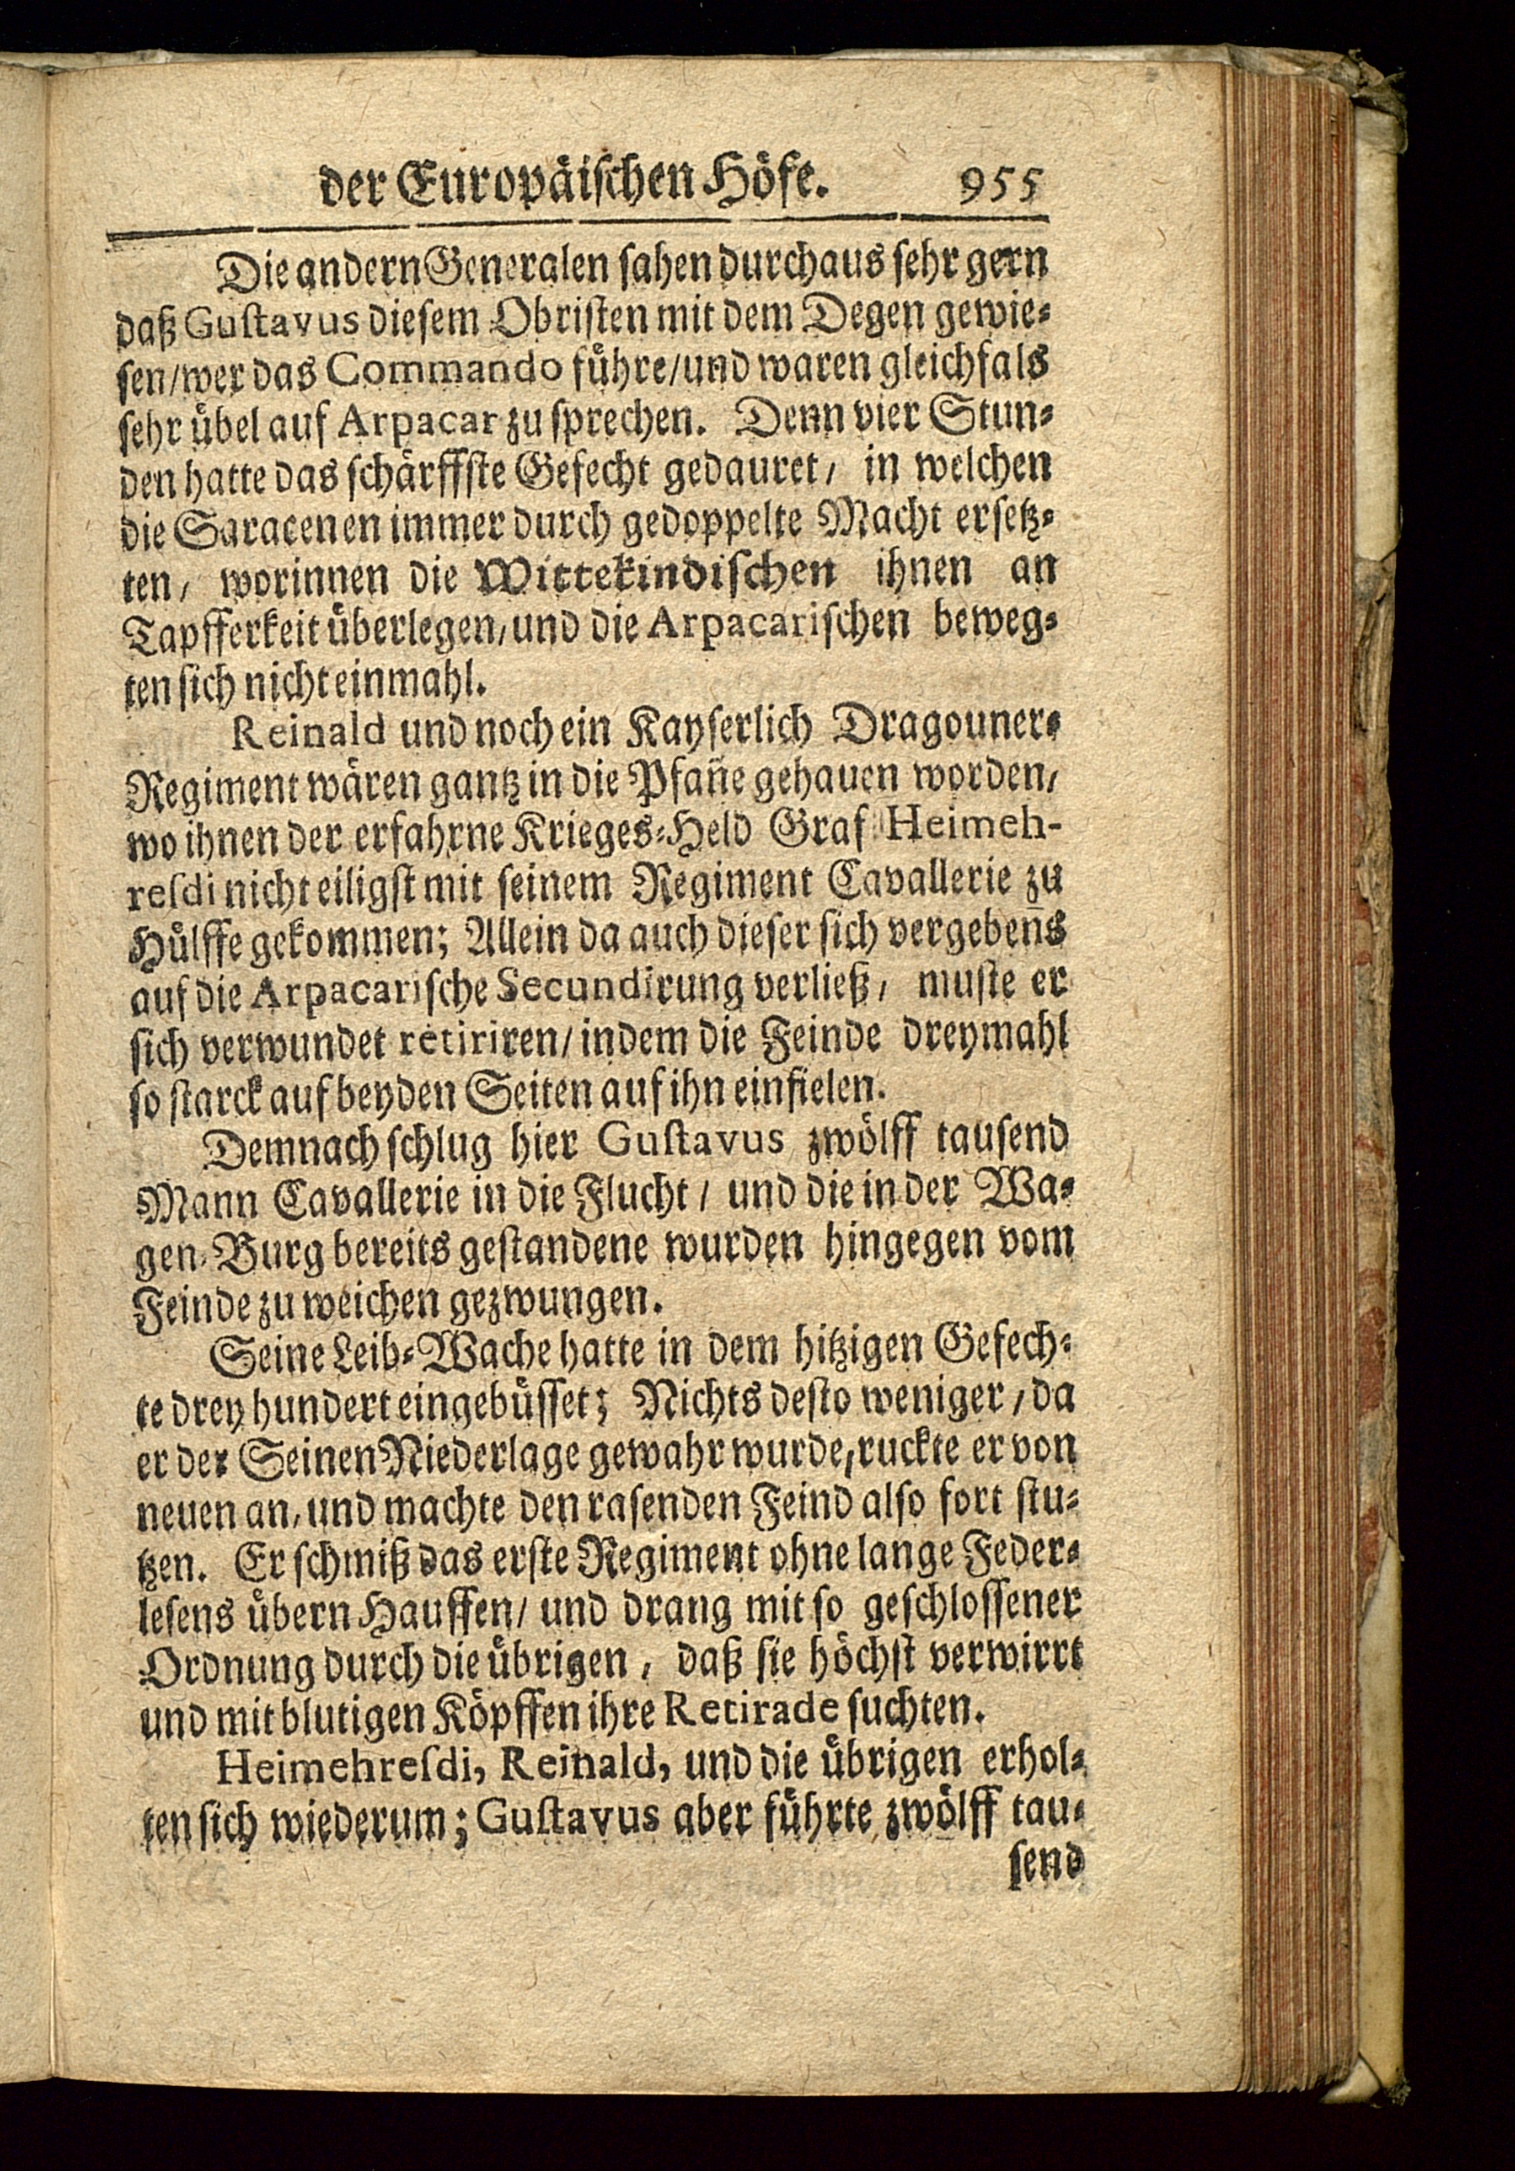 der Europäiſchen Höfe. 955
Die andern Generalen ſahen durchaus ſehr gern
daß Guſtavus dieſem Obriſten mit dem Degen gewie⸗
ſen/wer das Commando führe/und waren gleichfals
ſehr übel auf Arpacar zu ſprechen. Denn vier Stun⸗
den hatte das ſchärffſte Gefecht gedauret/ in welchen
die Saracenen immer durch gedoppelte Macht erſetz⸗
ten/ worinnen die Wittekindiſchen ihnen an
Tapfferkeit überlegen/und die Arpacariſchen beweg⸗
ten ſich nicht einmahl.
Reinald und noch ein Kayſerlich Dragouner⸗
Regiment wären gantz in die Pfañe gehauen worden/
wo ihnen der erfahrne Krieges⸗Held Graf Heimeh-
reſdi nicht eiligſt mit ſeinem Regiment Cavallerie zu
Hülffe gekommen; Allein da auch dieſer ſich vergebens̄
auf die Arpacariſche Secundirung verließ/ muſte er
ſich verwundet retiriren/indem die Feinde dreymahl
ſo ſtarck auf beyden Seiten auf ihn einfielen.
Demnach ſchlug hier Guſtavus zwölff tauſend
Mann Cavallerie in die Flucht/ und die in der Wa⸗
gen⸗Burg bereits geſtandene wurden hingegen vom
Feinde zu weichen gezwungen.
Seine Leib⸗Wache hatte in dem hitzigen Gefech⸗
te drey hundert eingebüſſet; Nichts deſto weniger/da
er der Seinen Niederlage gewahr wurde/ruckte er von
neuen an/und machte den raſenden Feind alſo fort ſtu⸗
tzen. Er ſchmiß das erſte Regiment ohne lange Feder⸗
leſens übern Hauffen/ und drang mit ſo geſchloſſener
Ordnung durch die übrigen/ daß ſie höchſt verwirrt
und mit blutigen Köpffen ihre Retirade ſuchten.
Heimehreſdi, Reinald, und die übrigen erhol⸗
ten ſich wiederum; Guſtavus aber führte zwölff tau⸗
ſend